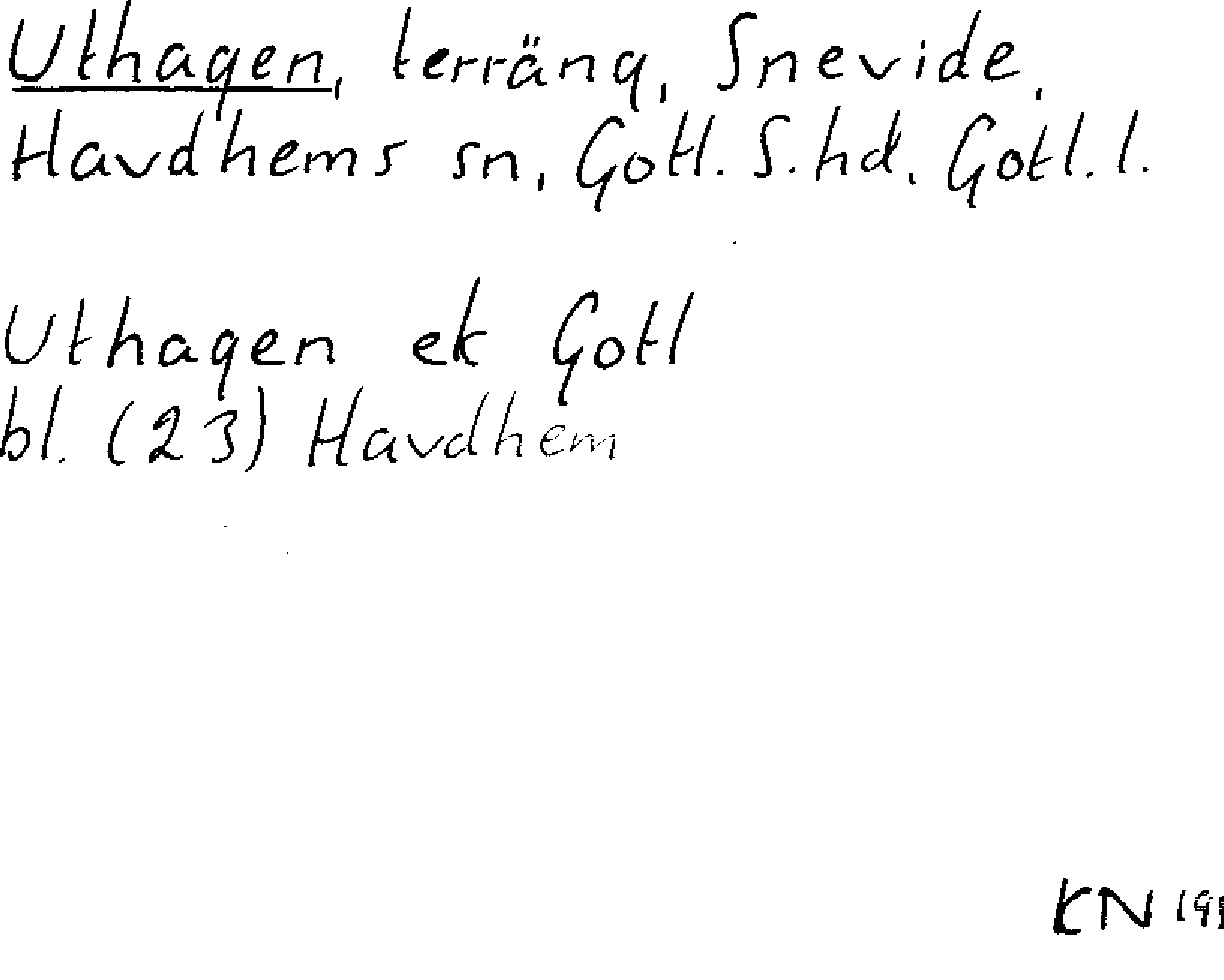 Uthagen, terräng, Snevide,
Havdhems sn, Gotl. S. hd, Gotl. l.
Uthagen ek Gotl
bl. (23) Havdhem
KN 191